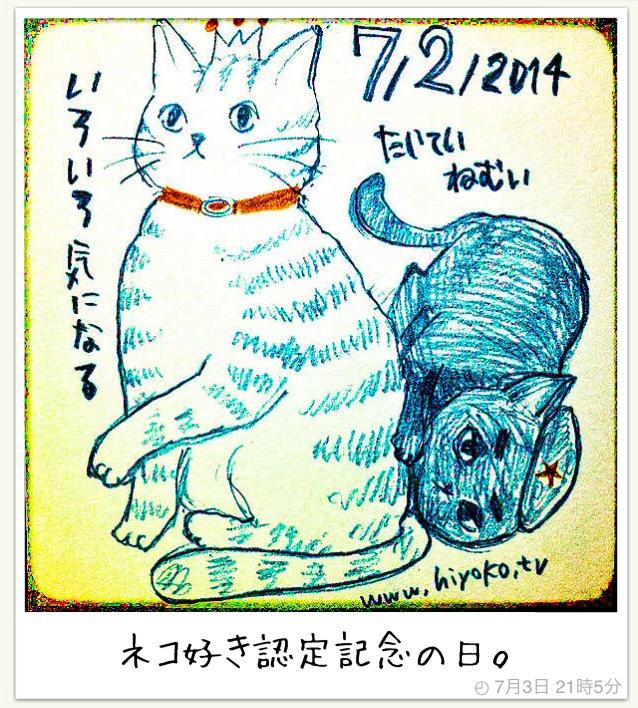 7/2/2014
いろいろ気になる
たいてい
ねむい
www.hiyoko.tv
ネコ好き認定記念の日。
7月3日 21時5分